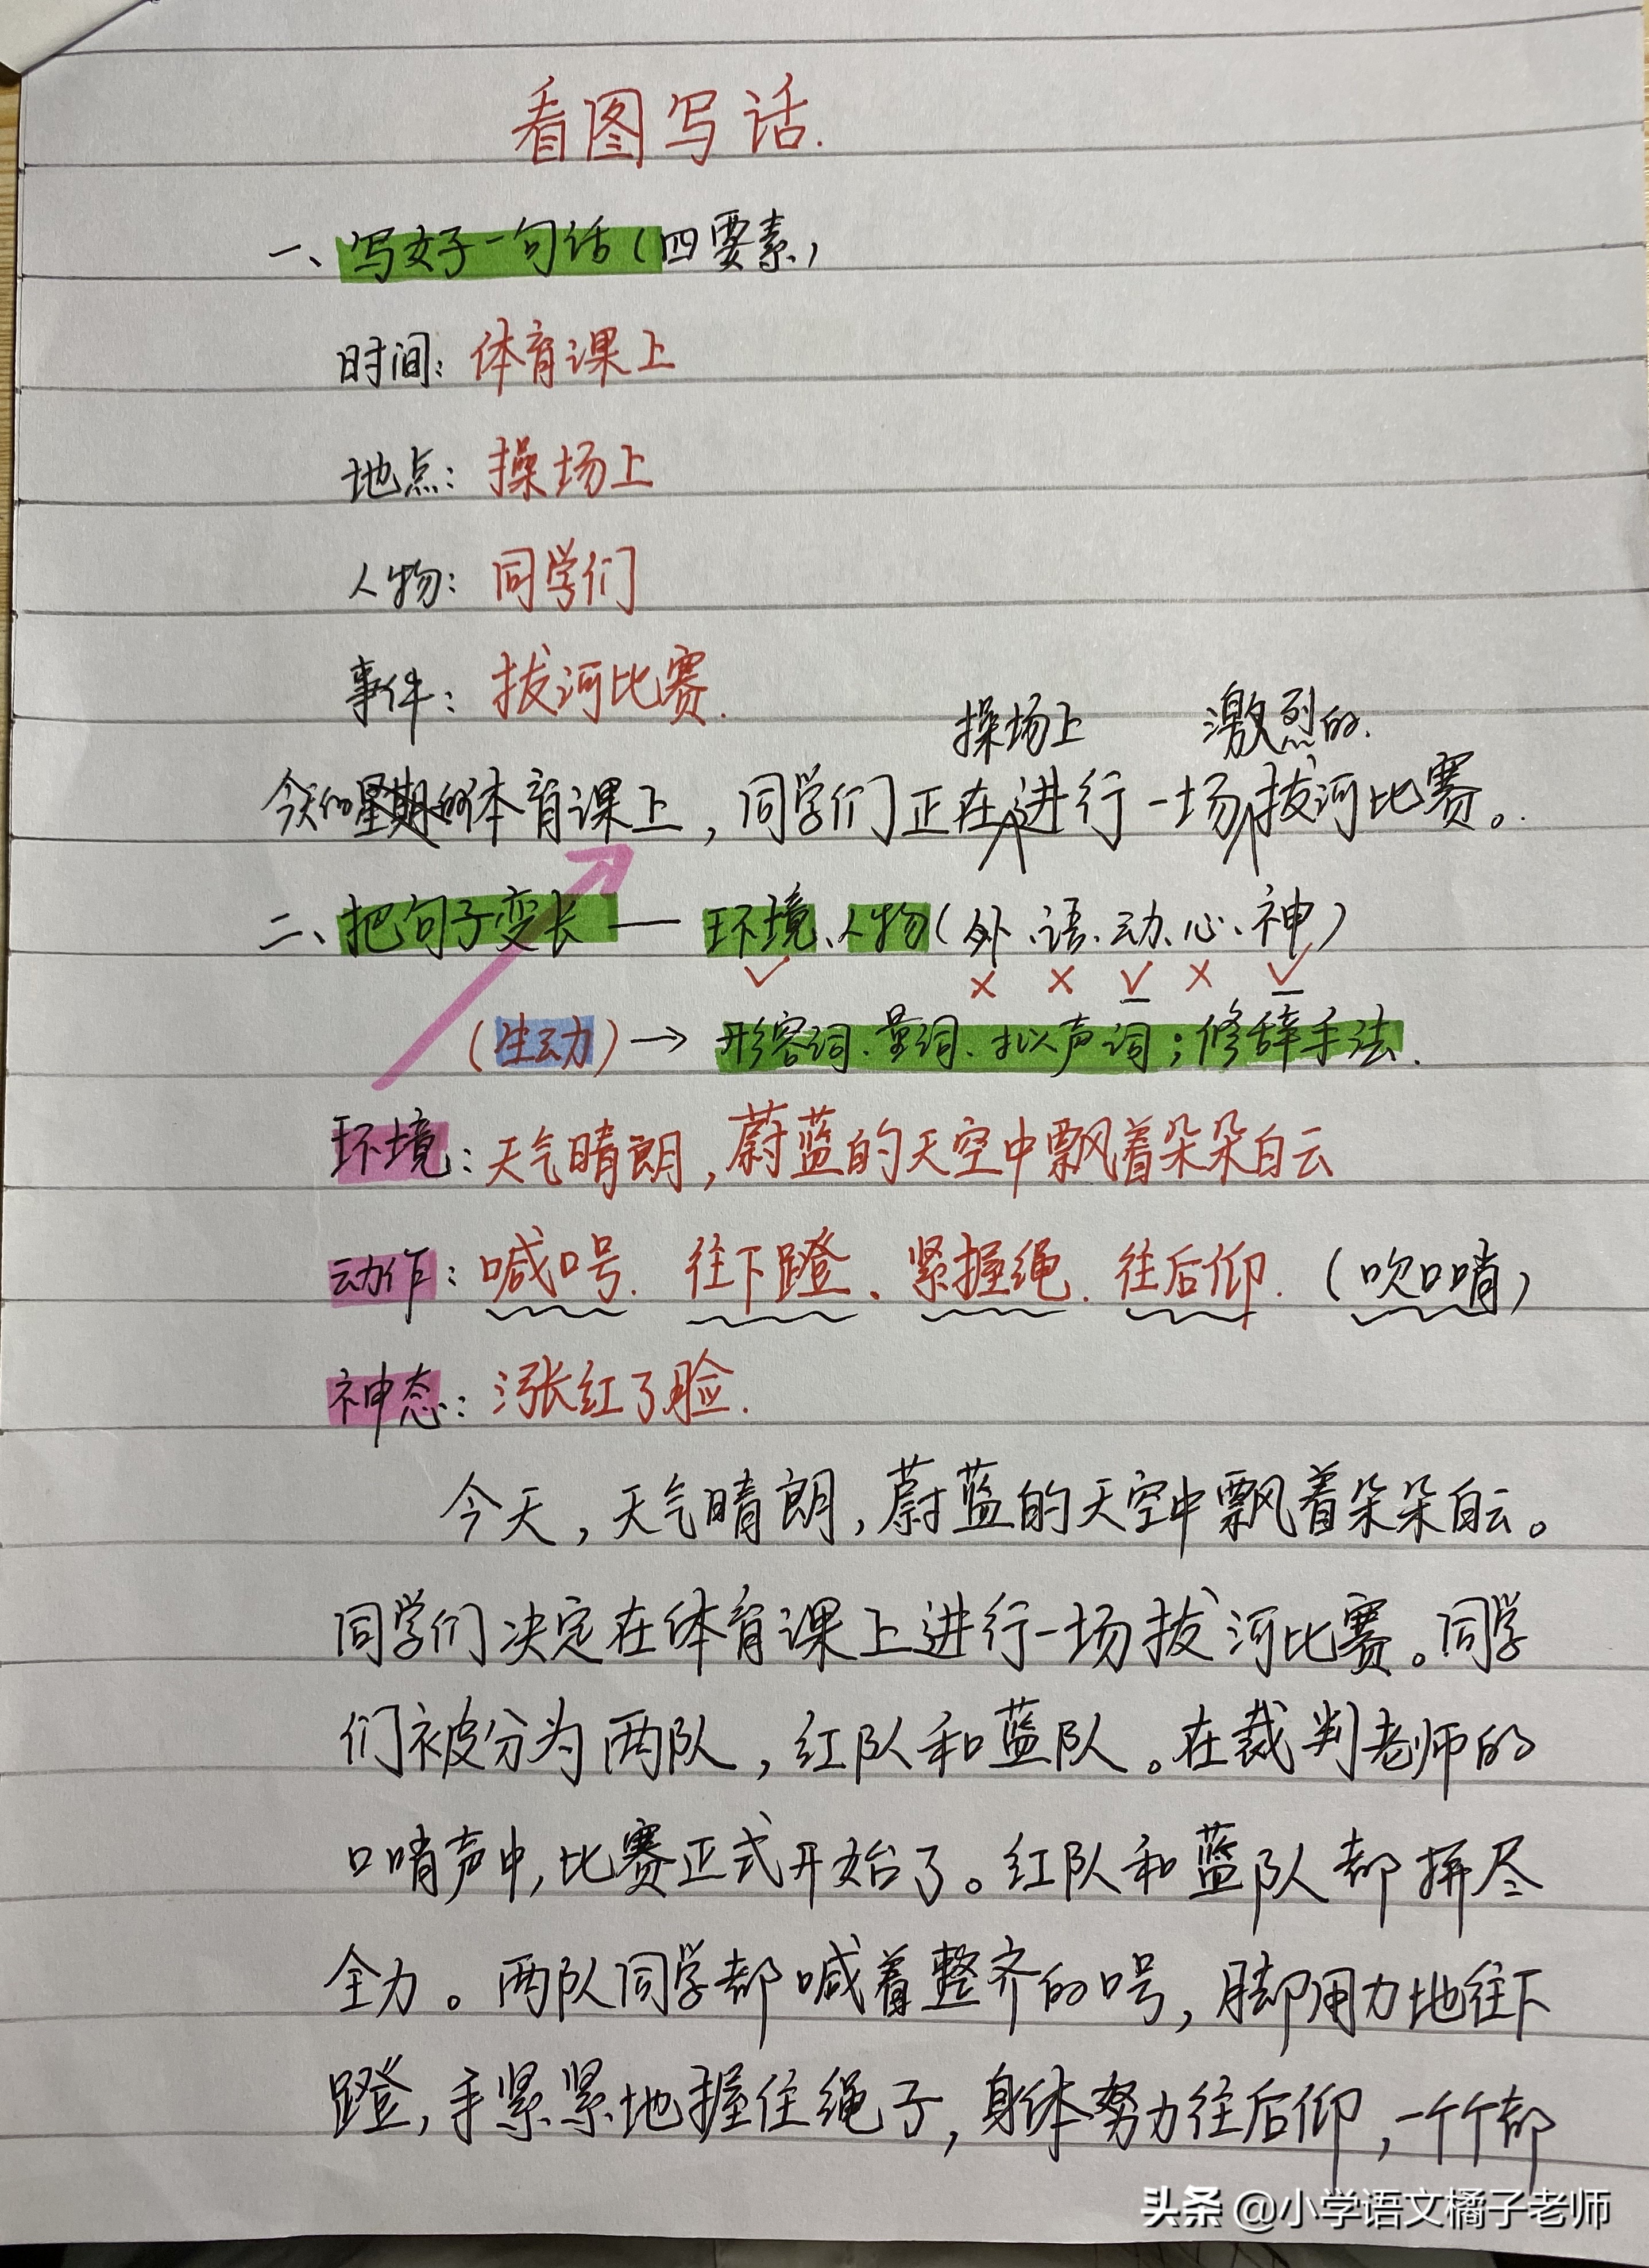 看图写话.
一、写好一句话(四要素)
时间：体育课上
地点：操场上
人物：同学们
事件：拔河比赛.
操场上 激烈的.
今天的体育课上，同学们正在进行一场拔河比赛。
二、把句子变长 — 环境、人物(外、语、动、心、神)
(生动)→ 形容词、量词、拟声词；修辞手法.
环境：天气晴朗，蔚蓝的天空中飘着朵朵白云
动作：喊口号. 往下蹬、紧握绳. 往后仰. (吹口哨)
神态：涨红了脸.
今天，天气晴朗，蔚蓝的天空中飘着朵朵白云。
同学们决定在体育课上进行一场拔河比赛。同学
们被分为两队，红队和蓝队。在裁判老师的
口哨声中，比赛正式开始了。红队和蓝队都拼尽
全力。两队同学都喊着整齐的口号，脚用力地往下
蹬，手紧紧地握住绳子，身体努力往后仰，一个个都
头条 @小学语文橘子老师